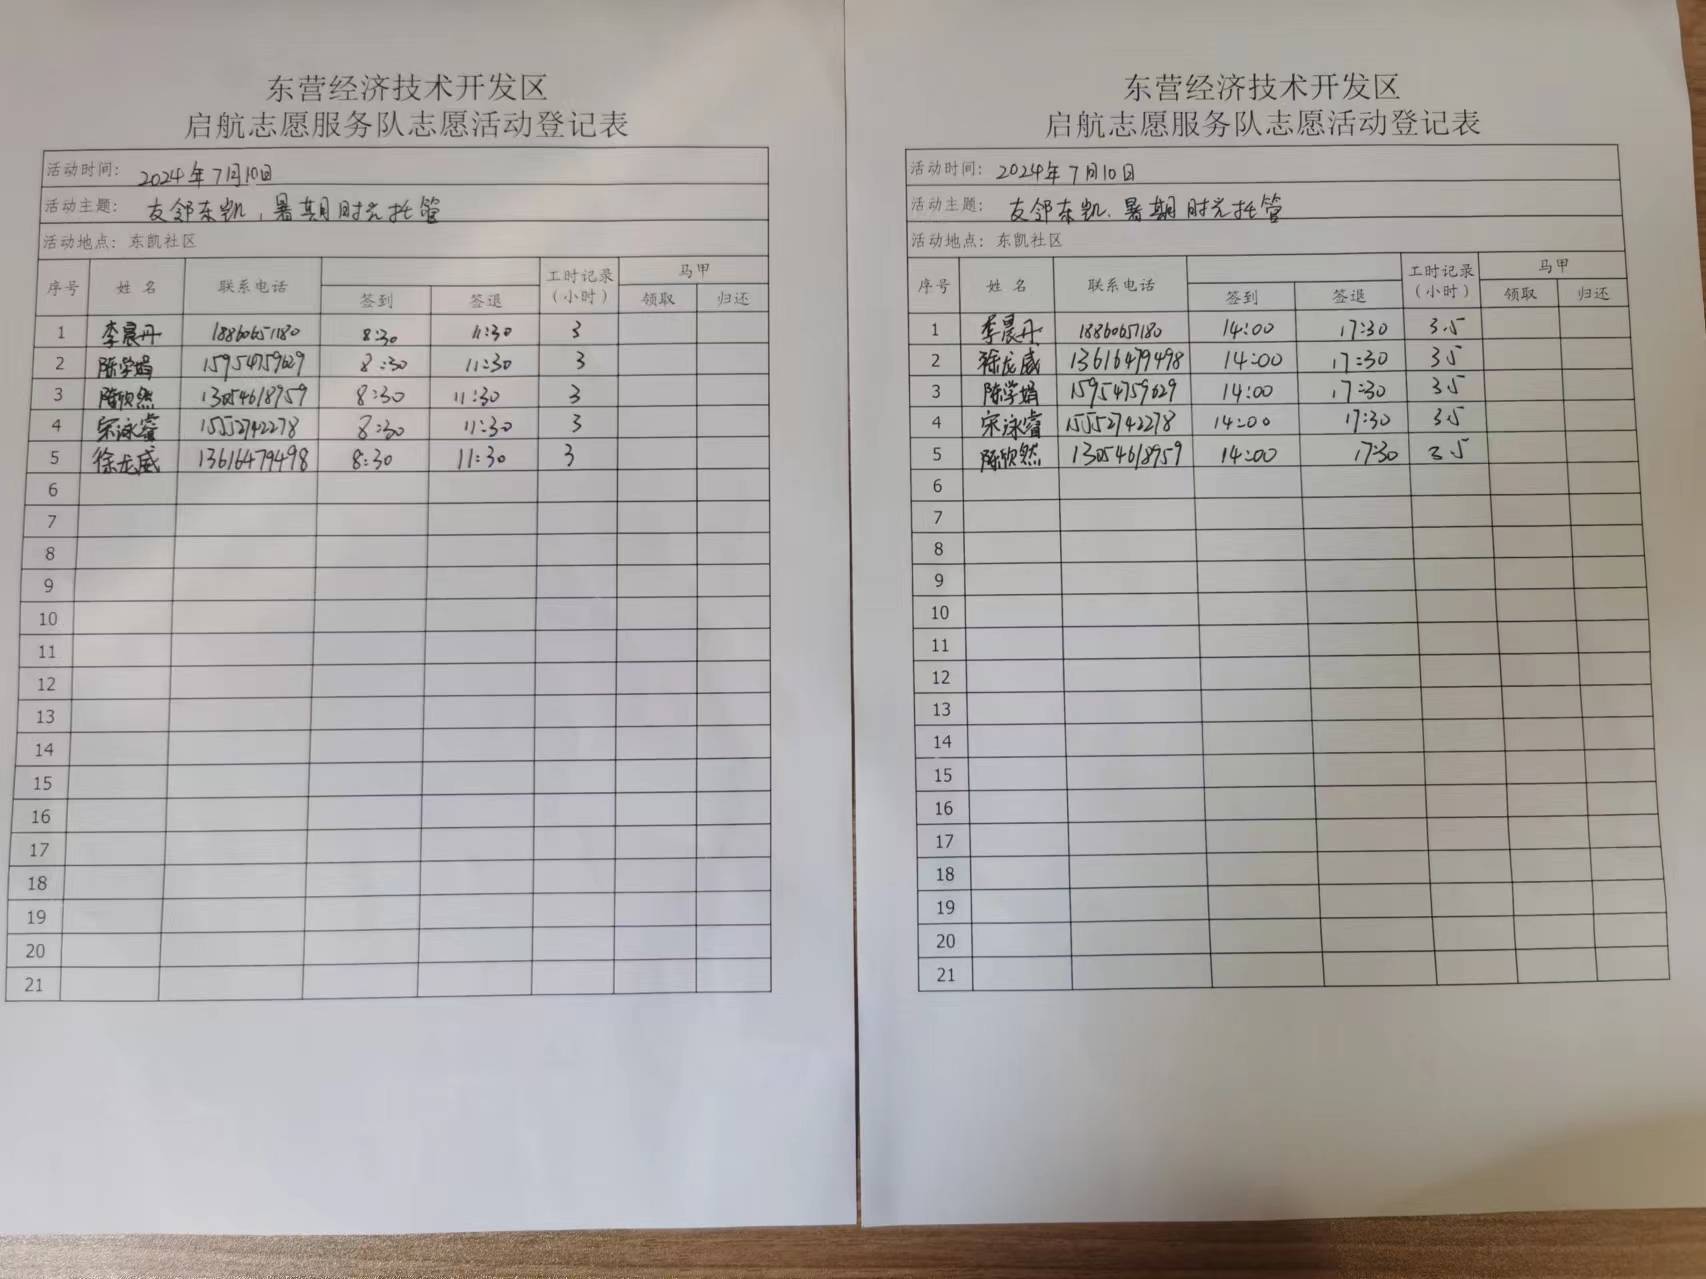 东营经济技术开发区
启航志愿服务队志愿活动登记表
活动时间： 2024年7月10日
活动主题： 友邻东凯，暑期时光托管
活动地点：东凯社区
序号 姓 名 联系电话 签到 签退 工时记录（小时） 马甲 领取 归还
1 李晨丹 18860651180 8:30 11:30 3
2 陈学娟 15954759629 8:30 11:30 3
3 陈欣然 13054618959 8:30 11:30 3
4 宋泳睿 15552742278 8:30 11:30 3
5 徐龙威 13616479498 8:30 11:30 3
6
7
8
9
10
11
12
13
14
15
16
17
18
19
20
21
东营经济技术开发区
启航志愿服务队志愿活动登记表
活动时间： 2024年7月10日
活动主题： 友邻东凯.暑期时光托管
活动地点：东凯社区
序号 姓 名 联系电话 签到 签退 工时记录（小时） 马甲 领取 归还
1 李晨丹 18860651180 14:00 17:30 3.5
2 徐龙威 13616479498 14:00 17:30 3.5
3 陈学娟 15954759629 14:00 17:30 3.5
4 宋泳睿 15552742278 14:00 17:30 3.5
5 陈欣然 13054618959 14:00 17:30 3.5
6
7
8
9
10
11
12
13
14
15
16
17
18
19
20
21